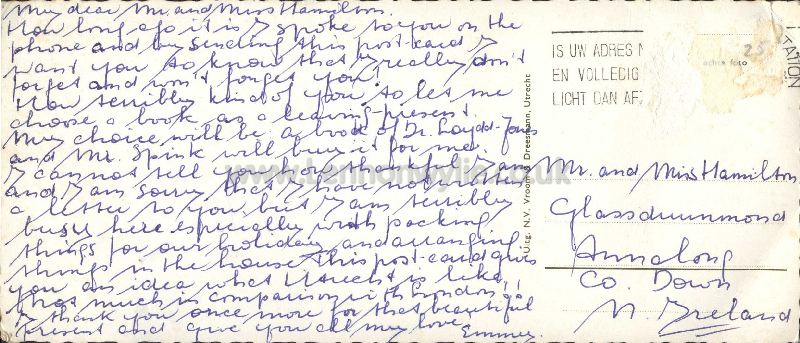 My dear Mr. and Miss Hamilton.
How long ago it is I spoke to you on the
phone and by sending this post-card I
want you to know that I really don't
forget and won't forget you!
How terribly kind of you to let me
choose a book as a leaving-present.
My choice will be a book of Dr. Loyd-Jones
and Mr. Spink will buy it for me.
I cannot tell you how thankful I am
and I am sorry that I have not written
a letter to you, but I am terribly
busy here especially with packing
things for our holiday and arranging
things in the house. This post-card gives
you an idea what Utrecht is like,
that much in comparison with London
I thank you once more for that beautiful
present and give you all my love Emmy.
www.Lennonwylie.co.uk
Uitg. N.V. Vroom & Dreesmann, Utrecht
IS UW ADRES
EN VOLLEDIG
LICHT DAN AF
echte foto
25
TATION
Mr. and Miss Hamilton
Glassdrummond
Annalong
Co. Down
N. Ireland